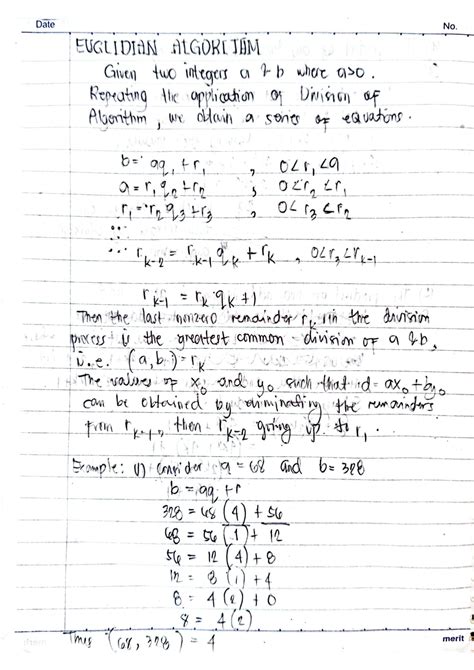 Date No.
EUCLIDIAN ALGORITHM
Given two integers a & b where a>0.
Repeating the application of Division of
Algorithm, we obtain a series of equations.
b = aq₁ + r₁ , 0<r₁<a
a = r₁q₂ + r₂ , 0<r₂<r₁
r₁ = r₂q₃ + r₃ , 0<r₃<r₂
r_{k-2} = r_{k-1} q_k + r_k , 0<r₃<r_{k-1}
r_{k-1} = r_k q_k+1
Then the last nonzero remainder r_k in the division
process is the greatest common division of a & b,
i.e. (a,b) = r_k
The values of x₀ and y₀ such that d = ax₀ + by₀
can be obtained by eliminating the remainders
from r_{k-1}, then r_{k=2} going up to r₁.
Example: (1) Consider a = 68 and b = 328
b = aq + r
328 = 68(4) + 56
68 = 56(1) + 12
56 = 12(4) + 8
12 = 8(1) + 4
8 = 4(2) + 0
8 = 4(2)
Thus (68, 328) = 4
merit